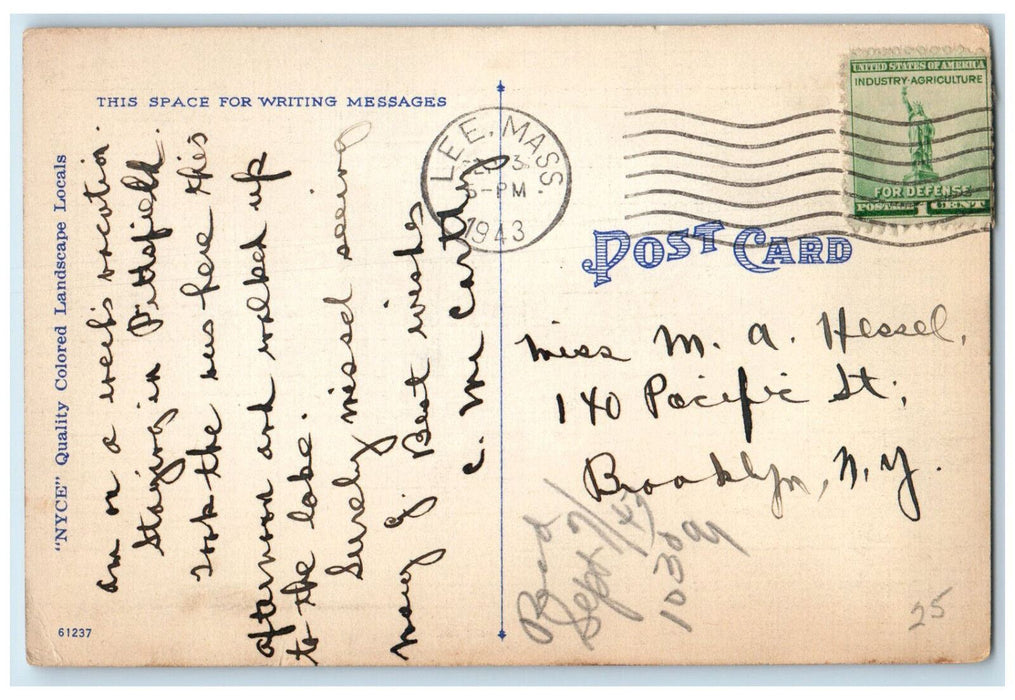 THIS SPACE FOR WRITING MESSAGES
"NYCE" Quality Colored Landscape Locals
61237
am on a week's vacation.
Staying in Pittsfield.
Took the bus here this
afternoon and walked up
to the lake.
Surely missed seeing
Mary J.
Best wishes
C. Mc Carthy
LEE, MASS.
3
5-PM
1943
UNITED STATES OF AMERICA
INDUSTRY·AGRICULTURE
FOR DEFENSE
POSTAGE 1 CENT
POST CARD
Miss M. A. Hessel,
140 Pacific St.,
Brooklyn, N.Y.
Recd
Sept 7/43
1030 a
25